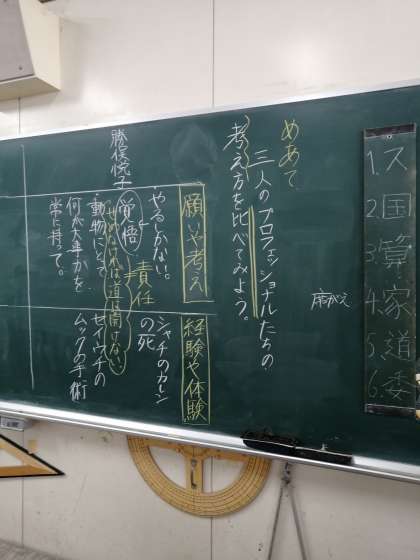 ス
1.国
2.国
3.算
4.家
5.道
6.委
席がえ
めあて
三人のプロフェッショナルたちの
考え方を比べてみよう。
願いや考え
経験や体験
やるしかない。
シャチのカレン
の死
責任
覚悟
せめなければ道は開けない
勝俣悦子
・動物にとって
何が大事かを
常に持って。
セイウチの
ムックの手術